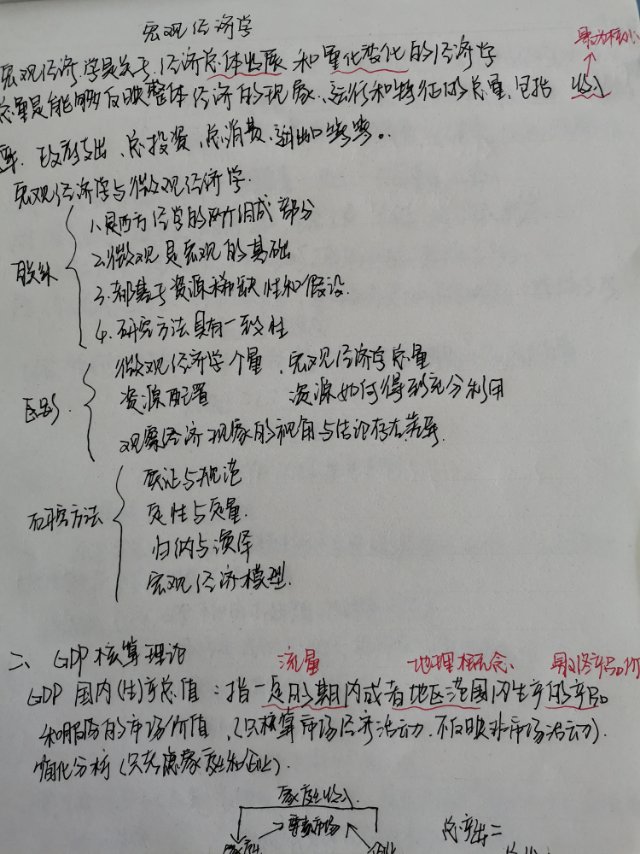 宏观经济学
最为核心
宏观经济学是关于经济总体发展和量化变化的经济学
总量是能够反映整体经济的现象、运行和特征的总量,包括 收入
政府支出、总投资、总消费、进出口等等。
宏观经济学与微观经济学.
联系
1.是西方经济学的两个组成部分
2.微观是宏观的基础
3.都基于资源稀缺性和假设.
4.研究方法具有一致性
区别.
微观经济学个量、宏观经济学总量
资源配置 资源如何得到充分利用
观察经济现象的视角与结论存在差异.
研究方法
实证与规范
定性与定量.
归纳与演绎
宏观经济模型.
二、GDP核算理论 流量 地理概念、
GDP 国内(生)产总值:指一定时期内或者地区范围内生产的产品
和服务的市场价值,(只核算市场经济活动.不反映非市场活动).
简化分析(只考虑家庭和企业).
家庭收入
家庭 企业
总产出=